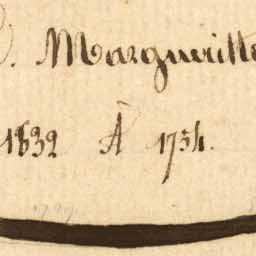 . Margueritte
1832 À 1734.